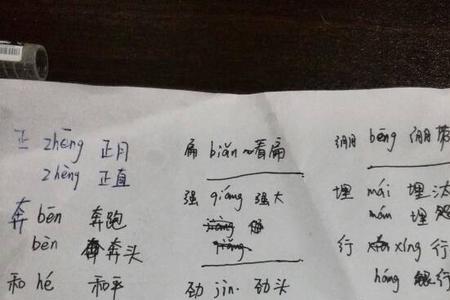 正 zhēng 正月
zhèng 正直
奔 bēn 奔跑
bèn 奔头
和 hé 和平
扁 biǎn ~看扁
强 qiáng 强大
劲 jìn. 劲头
绷 bēng 绷带
埋 mái 埋汰
mán 埋
行 xíng 行
háng 银行